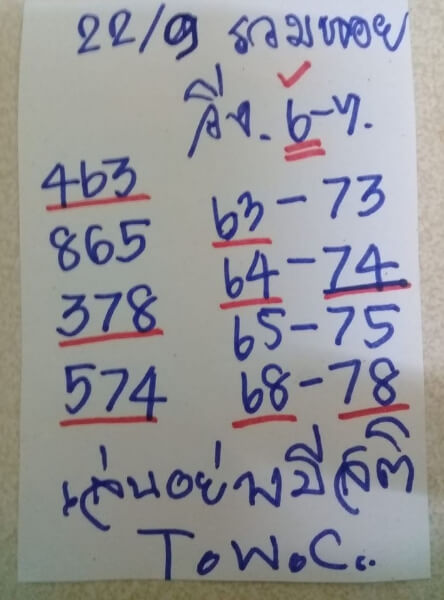 22/9 รวมหวย
วิ่ง. 6-7.
463 63-73
865 64-74
378 65-75
574 68-78
เล่นอย่างมีสติ
T.W.C.